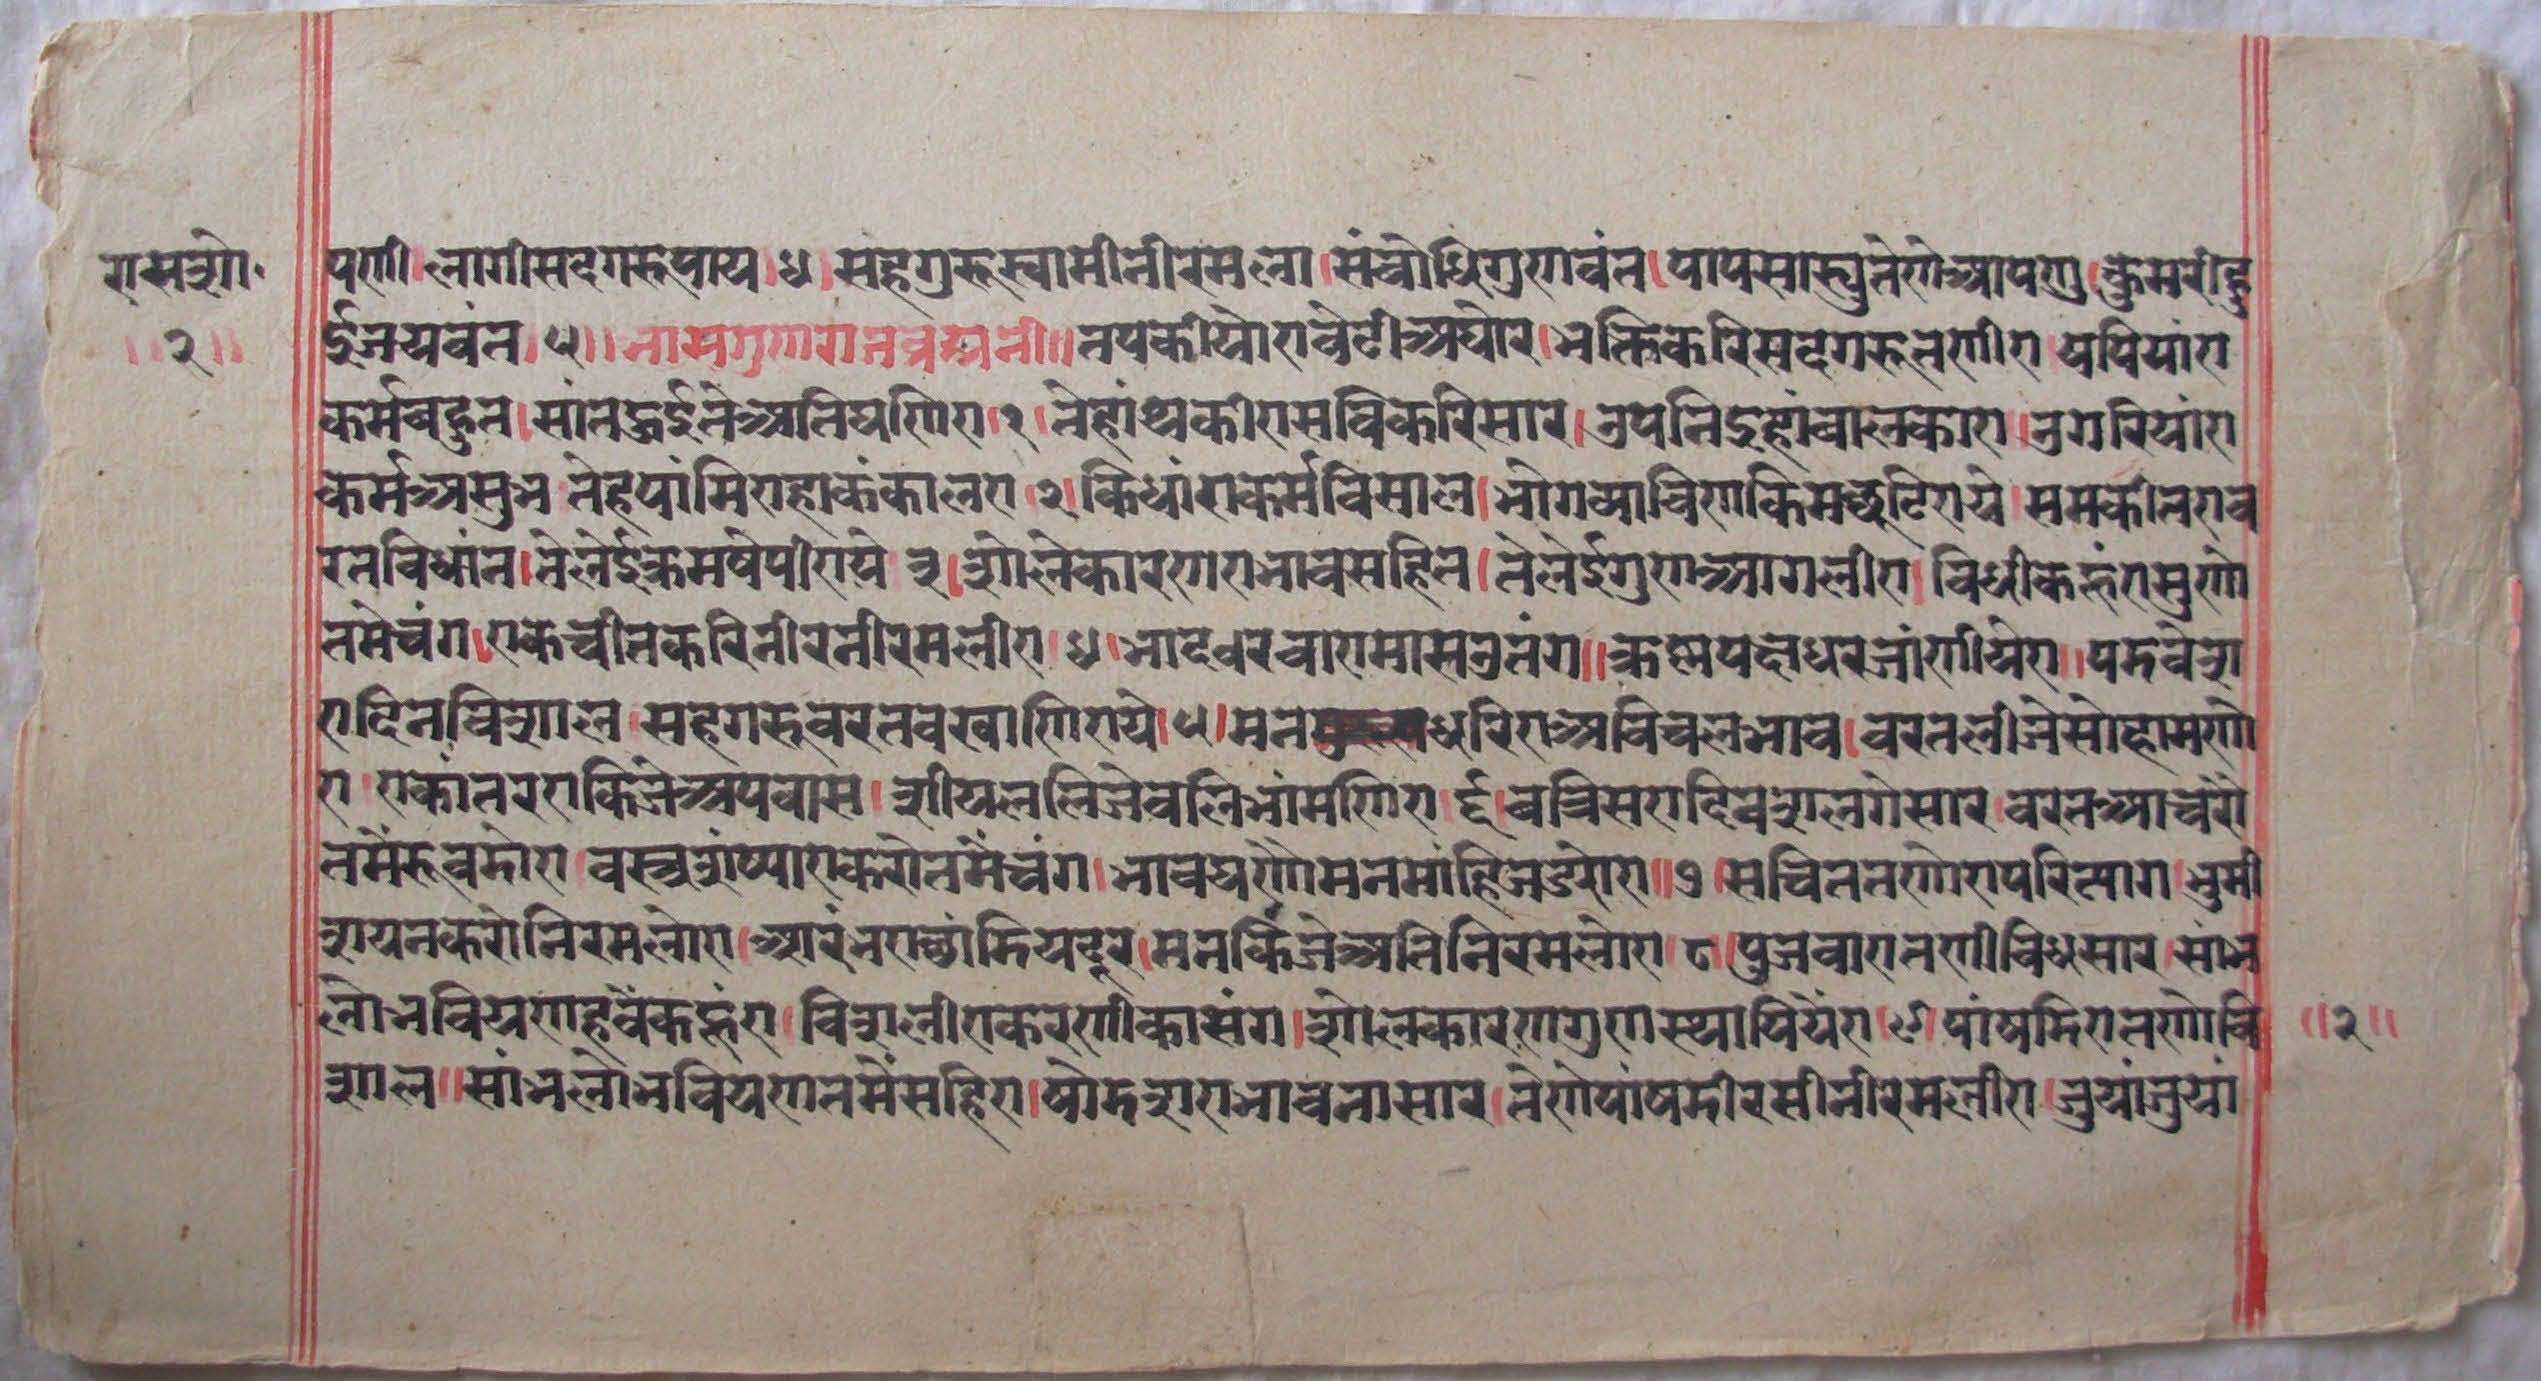 रासशो॰
॥२॥
पणी।लागीसदगरुपाय।४।सहगुरुस्वामीनीरमला।संबोधिगुणवंत।पापसास्युतेणेआपणु।कुमरीहु
ईजयवंत।५॥भासगुणराजब्रह्मनी॥तपकीयोराबेटीअघोर।भक्तिकरिसदगरुतणीरा।यषियांरा
कर्मबहुत।सांतहुईतेअतिघणिरा।१।तेहांथकीरासविकरिसार।उपनिइहांबालकारा।उगरियांरा
कर्मअसुभ।तेहपांमिराहाकंकालरा।२।किधांराकर्मविसाल।भोगव्याविणकिमछुटिराये।समकीतराव
रतविधांन।तेलेईकमषेपीराये३।शोलेकारणराभावसहित।तेलेईगुणआगलीरा।विधीकहुंरासुणो
तमेचंग।राकचीतकरिनीरनीरमलीरा।४।भादवरवारामासउतंग॥कृष्णपक्षधरजांणीयेरा॥पडवेरा
रादिनविशाल।सहगरुवरतवखाणिराये।५।मन धरिराअविचलभाव।वरतलीजेसोहामणो
रा।राकांतरराकिजेअपवास।शीयललिजेवलिभांमणिरा।६।बत्रिसरादिवशलगेसार।वरतआचरो
तमेंरुवडोरा।वस्त्ररांप्यारकरोतमेंचंग।भावघणोमनमांहिजड्योरा॥७।सचिततणोरापरित्याग।भुमी
शयनकरोनिरमलोरा।आरंभराछांडियदूर।मनकिजेअतिनिरमलोरा।८।पुजवारातणीविधसार।सांभ
लोभवियणहवेंकहुंरा।विशलीराकरणीकासंग।शोलकारणगुणस्थापियेंरा।९।पांषडिरातणोवि
॥२॥
शाल॥सांभलोभवियणतमेंसहिरा।षोडशराभावनासार।तेणेपांषडीरसीनीरमलीरा।जुयांजुयां